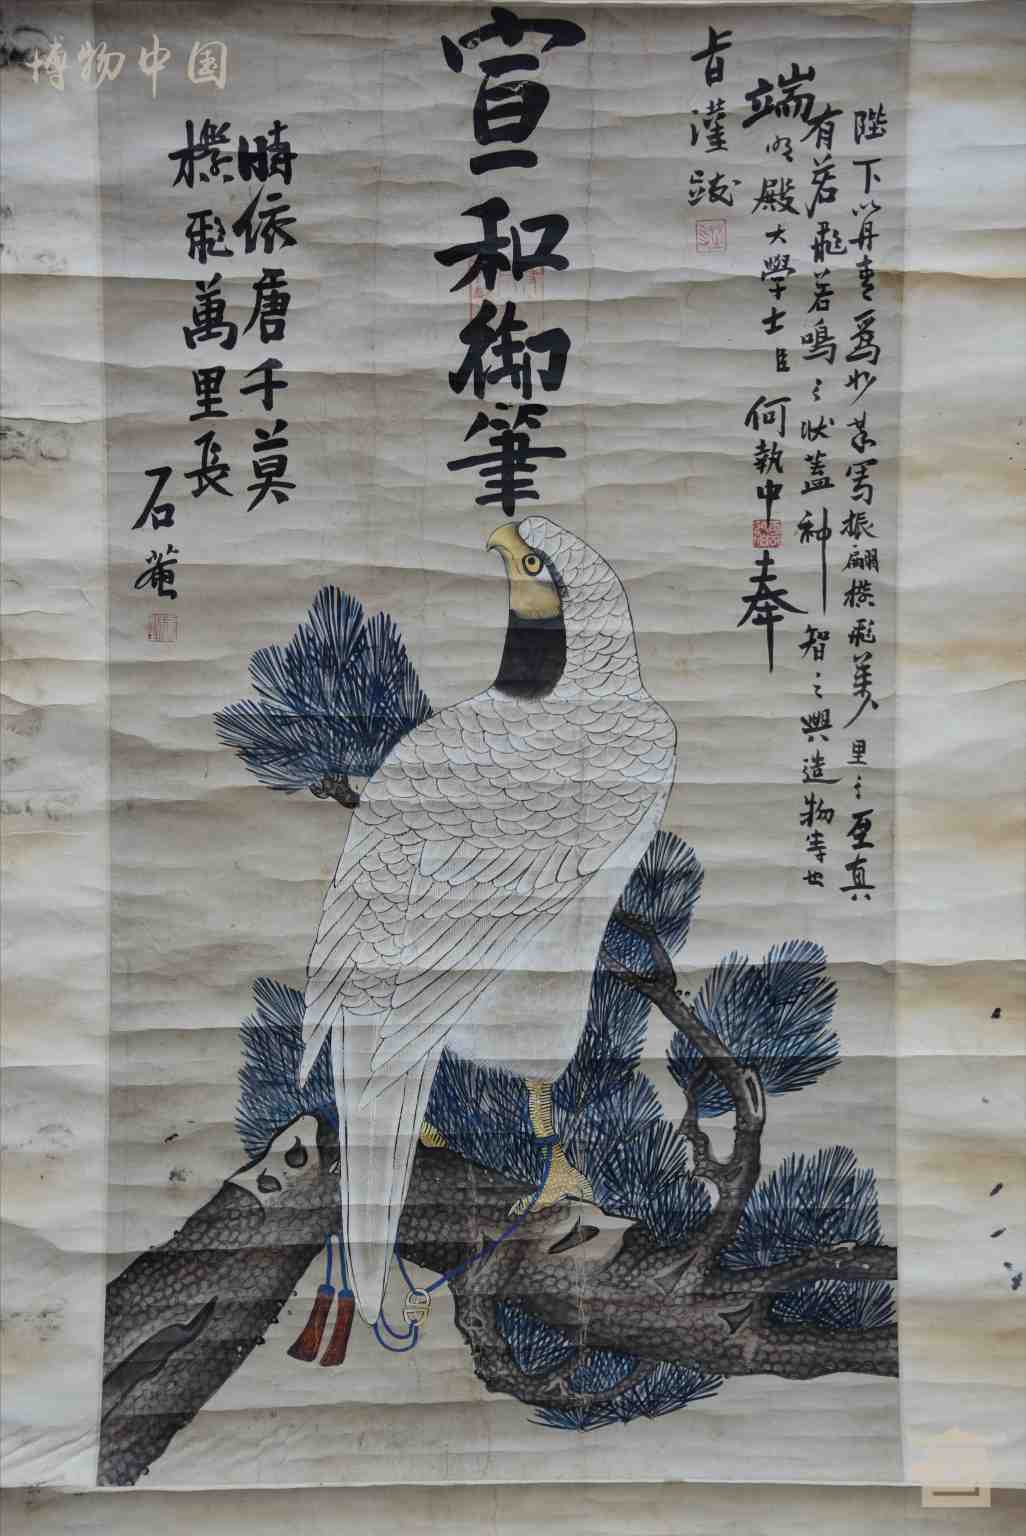 博物中国
宣和御筆
陛下以丹青爲妙筆寫振翮橫飛萬里之至真
有若飛若鳴之狀蓋神智之興造物等也
端明殿大學士臣何執中奉
旨謹跋
時依唐千莫
飛萬里長
石菴